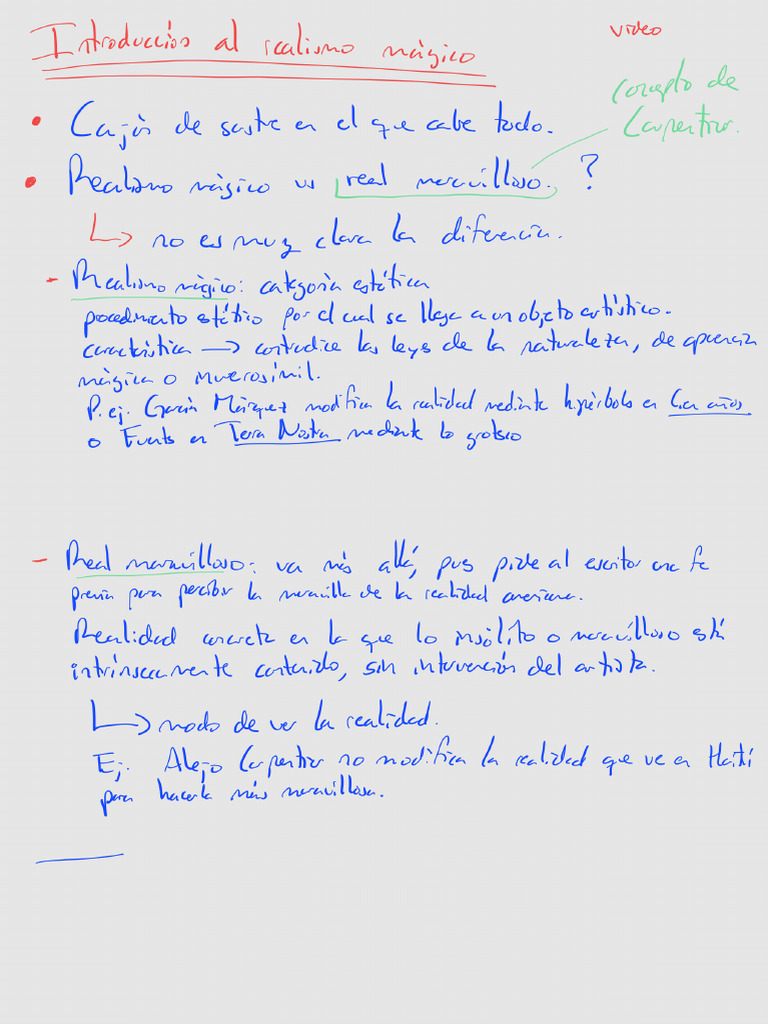 Introducción al realismo mágico
video
Concepto de
Carpentier.
• Cajón de sastre en el que cabe todo.
• Realismo mágico vs real maravilloso. ?
↳ no es muy clara la diferencia.
- Realismo mágico: categoría estética
procedimiento estético por el cual se llega a un objeto artístico.
característica → contradice las leyes de la naturaleza, de apariencia
mágica o inverosímil.
P. ej. García Márquez modifica la realidad mediante hipérbole en Cien años
o Fuentes en Terra Nostra mediante lo grotesco
- Real maravilloso: va más allá, pues pide al escritor una fe
previa para percibir la maravilla de la realidad americana.
Realidad concreta en la que lo insólito o maravilloso está
intrínsecamente contenido, sin intervención del artista.
↳ modo de ver la realidad.
Ej. Alejo Carpentier no modifica la realidad que ve en Haití
para hacerla más maravillosa.